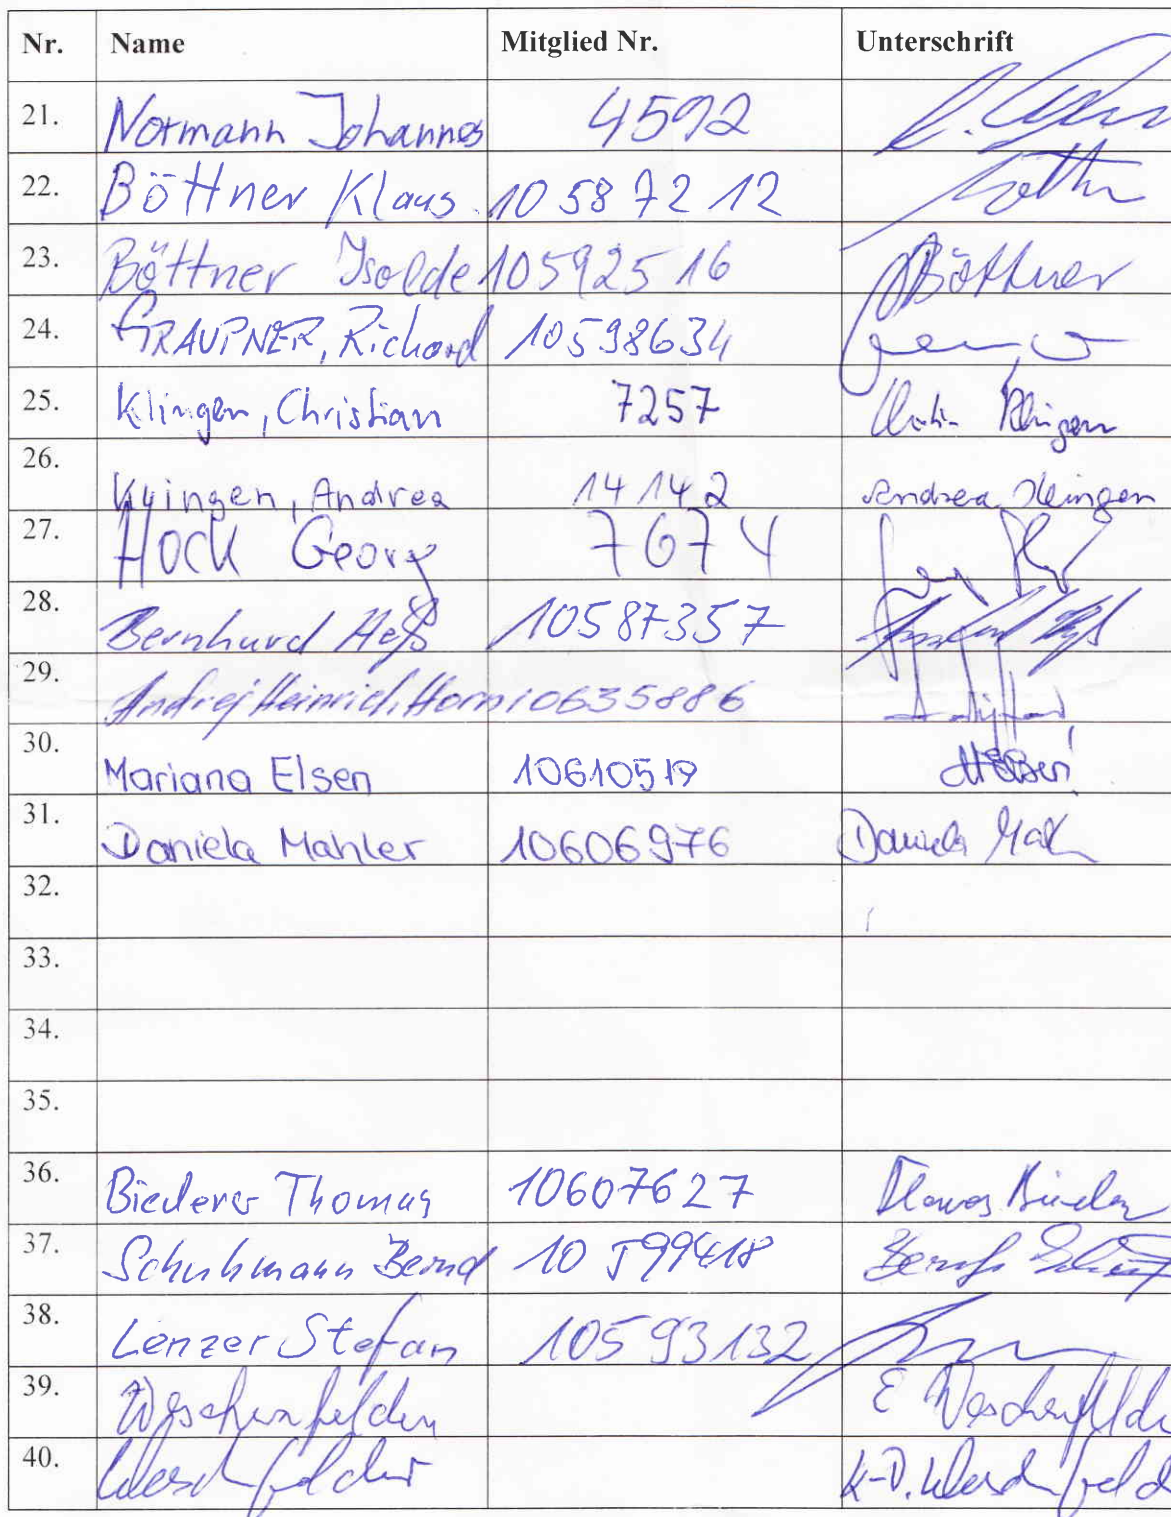 Nr. Name Mitglied Nr. Unterschrift
21. Normann Johannes 4592
22. Böttner Klaus 10587212
23. Böttner Isolde 10592516 Böttner
24. GRAUPNER, Richard 10598634
25. Klingen, Christian 7257 Klingen
26. Klingen, Andrea 14142 Andrea Klingen
27. Hock Georg 7674
28. Bernhard Heß 10587357
29. Andrej Heinrich, Horn 10635886
30. Mariana Elsen 10610519
31. Daniela Mahler 10606976 Daniela Mahl
32.
33.
34.
35.
36. Biederer Thomas 10607627 Thomas
37. Schuhmann Bernd 10599418 Bernd
38. Lenzer Stefan 10593132
39. Weschenfelder E Weschenfelde
40. Weschenfelder K-D. Weschenfeld